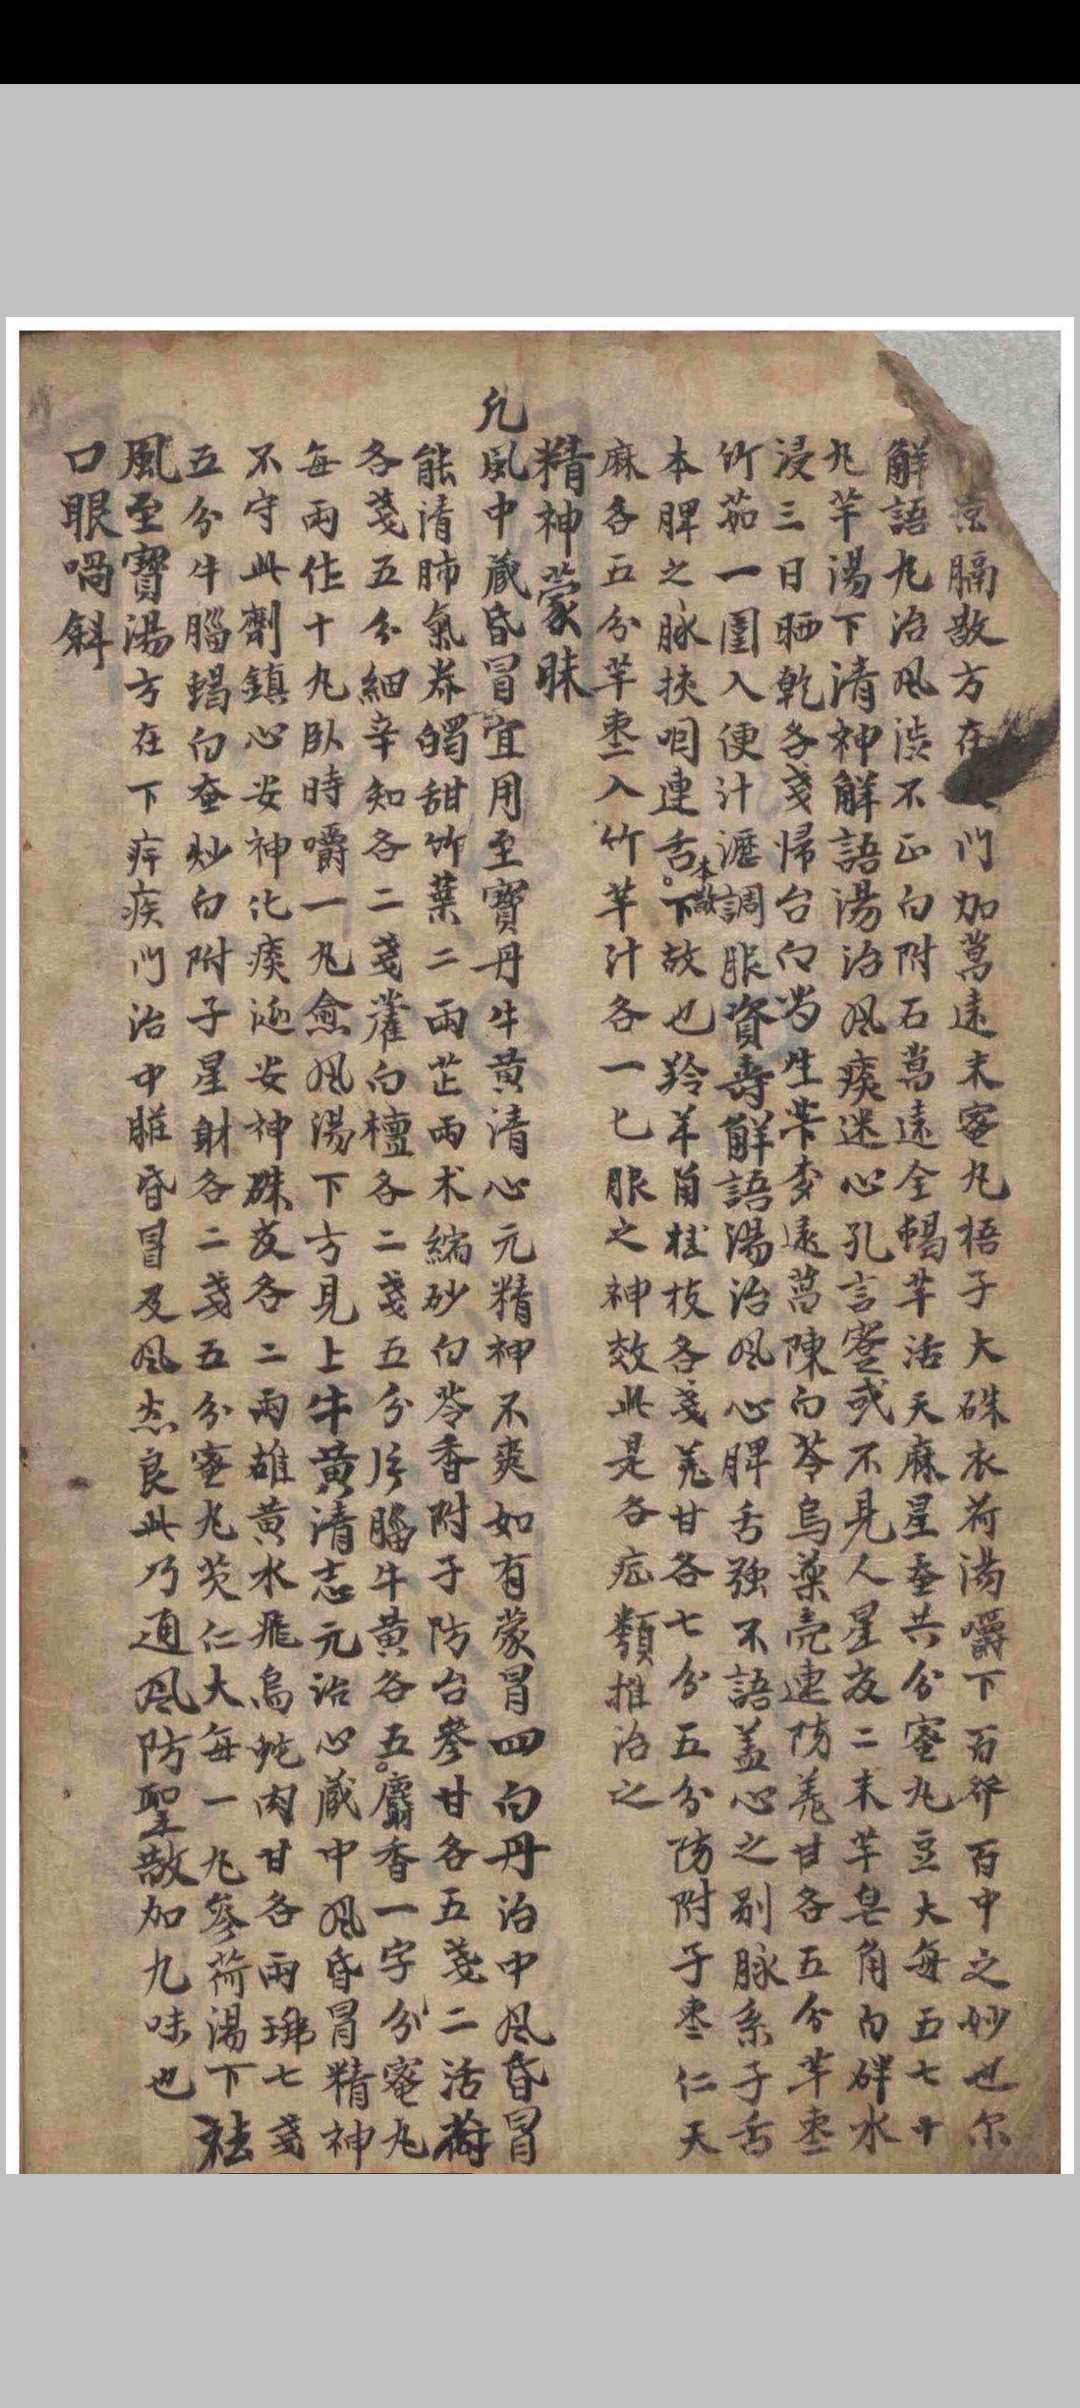 涼膈散方在門加菖遠末蜜丸梧子大硃衣荷湯嚼下百發百中之妙也尔
解語丸治风澁不正白附石菖遠全蝎羊活天麻星蚕共分蜜丸豆大每五七十
丸羊湯下清神解語湯治风痰迷心孔言蹇或不見人星友二末羊皂角內碎水
浸三日晒乾各戔歸台白芍生芐麦遠菖陳白苓烏藥羌連防羌甘各五分羊枣
竹茹一圍入便汁瀝調服資壽解語湯治风心脾舌强不語盖心之别脉系子舌
本脾之脉挾咽連舌本散下故也羚羊角桂枝各戔羌甘各七分五分防附子枣仁天
麻各五分羊枣入竹羊汁各一匕服之神效此是各症類推治之
精神蒙昧
凢风中藏昏冒宜用至寶丹牛黄清心元精神不爽如有蒙冒四白丹治中风昏冒
能清肺氣养魄甜竹葉二兩芷兩术縮砂白苓香附子防台參甘各五戔二活荷
各戔五分細辛知各二戔藿白檀各二戔五分片腦牛黄各五麝香一字分蜜丸
每兩作十丸臥時嚼一丸愈风湯下方見上牛黄清志元治心藏中风昏冒精神
不守此劑鎮心安神化痰涎安神硃友各二兩雄黄水飛烏蛇肉甘各兩珠七戔
五分牛腦蝎白蚕炒白附子星射各二戔五分蜜丸芡仁大每一丸參荷湯下祛
風至寶湯方在下痹疾門治中脏昏冒及风恣良此乃通风防聖散加九味也
口眼喎斜